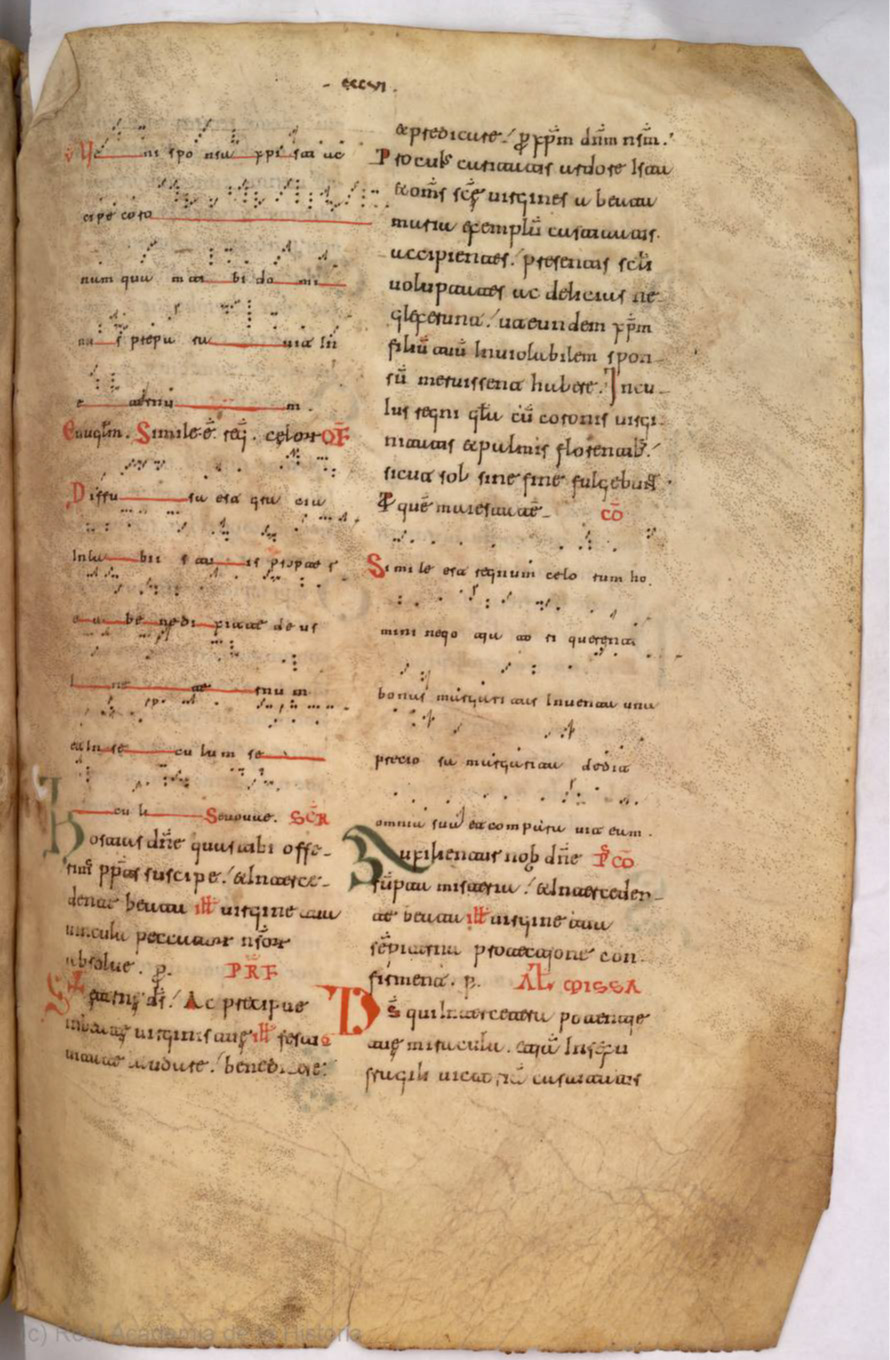 - cccvi .
V Ve ni spon sa xpi sci ac
cipe coro
nam qua m ti bi do mi
nu s prepa ra uit in
e ternu m .
Euuglm. Simile ē. reg̃. celor̃ OF̄
Diffu sa est gra cia
in la bii s tu is propte r
e a be nedi xit te de us
i ne te rnu m
et in se cu lum se
cu li Seuouae. SCR̄
Hostias dñe quas tibi offe-
rim⁹ pp̄as suscipe / et interce-
dente beata ill̃ uirgine tua
uincula peccator̃ nr̃or̃
absolue . p̱. PRF̄
eterne d̄s / Ac precipue
in beate uirginis tue ill̃ festiui
tate laudare / benedicere /
et predicare / p̱ xp̄m dñm nr̃m .
Pro cui⁹ castitatis ardore ista
et om̃s scē uirgines a beata
maria exemplū castitatis
accipientes / presentis scl̃i
uoluptates ac delicias ne
glexerunt / ut eundem xp̄m
filiū tuū inuiolabilem spon
sū meruissent habere . In cu
ius regni
uirgi
nitatis et palmis florentib; /
sicut sol sine fine fulgebunt
Per quē maiestatē- CŌ
Simile est regnum celo rum ho
mini nego cia to ri querenti
bonas margari tas inuenta una
precio sa margarita dedit
omnia sua et comparauit eam .
Auxilientur nob dñe P̄ CŌ
sūpta misteria / et interceden-
te beata ill̃ uirgine tua
sēpiterna protectione con
firment . p̱. AL̄ MISSA
Ds̄ qui inter cetera potentie
tue miracula . etiā in sexu
fragili uictoriā castitatis
(c) Real Academia de la Historia